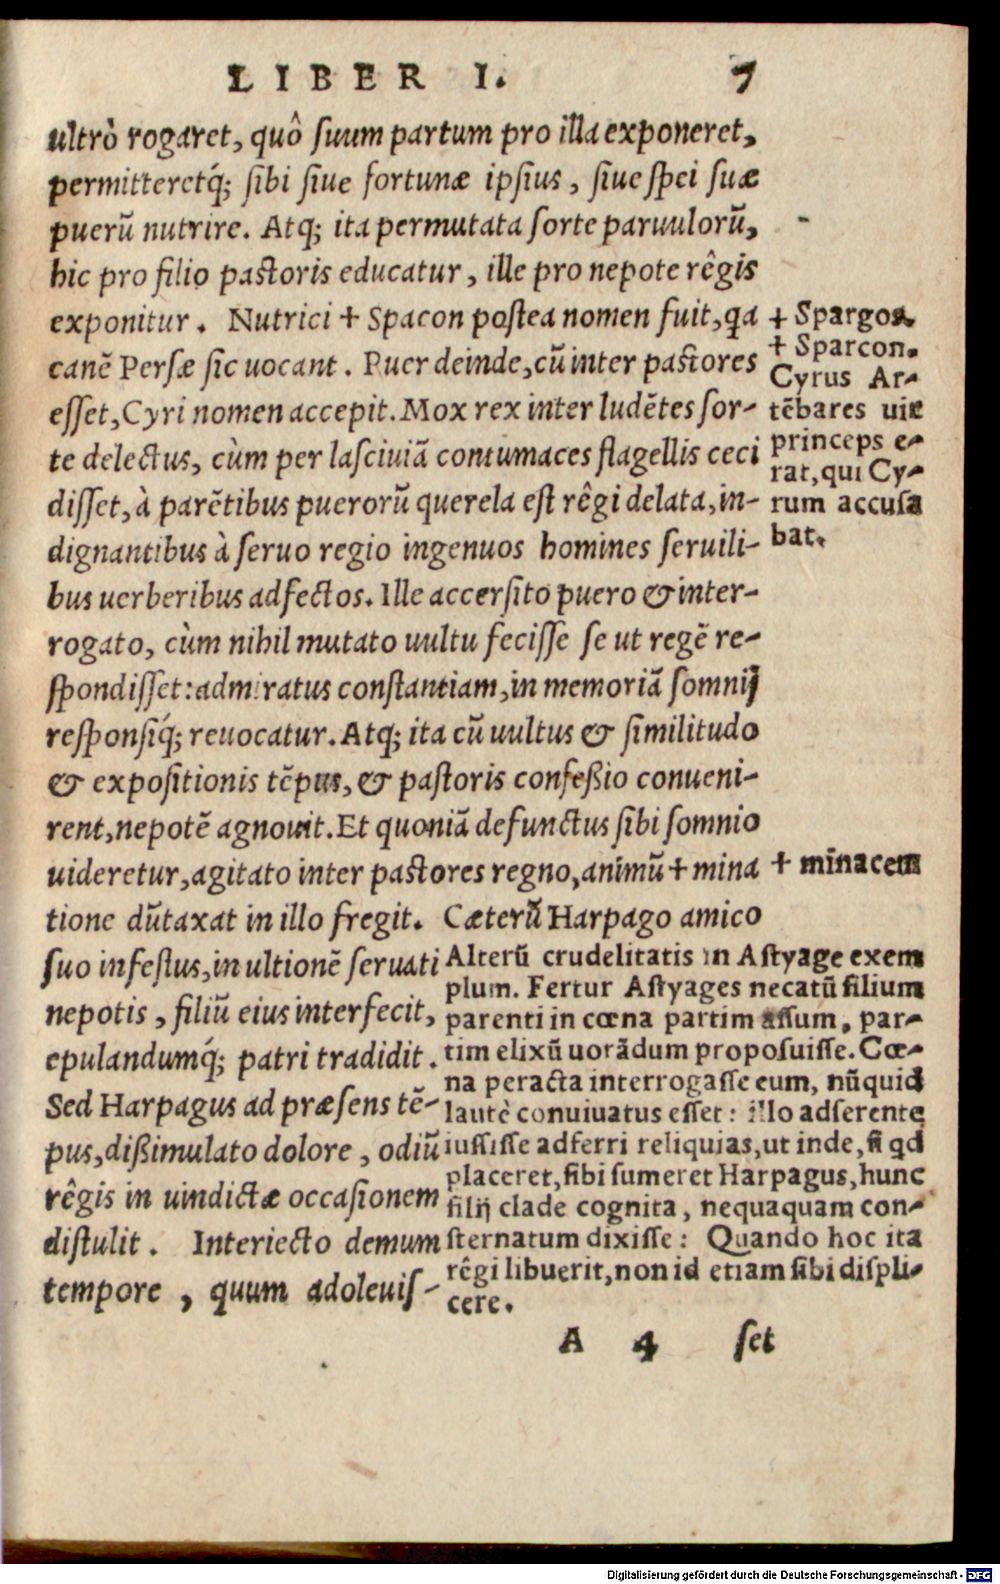 LIBER I. 7
ultrò rogaret, quô suum partum pro illa exponeret,
permitteretq́; sibi siue fortunæ ipsius, siue spei suæ
puerũ nutrire. Atq; ita permutata sorte paruulorũ,
hic pro filio pastoris educatur, ille pro nepote rêgis
exponitur. Nutrici + Spacon postea nomen fuit, qa
canẽ Persæ sic uocant. Puer deinde, cũ inter pastores
esset, Cyri nomen accepit. Mox rex inter ludẽtes sor-
te delectus, cùm per lasciuiã contumaces flagellis ceci
disset, à parẽtibus puerorũ querela est rêgi delata, in-
dignantibus à seruo regio ingenuos homines seruili-
bus uerberibus adfectos. Ille accersito puero & inter-
rogato, cùm nihil mutato uultu fecisse se ut regẽ re-
spondisset: admiratus constantiam, in memoriã somnij
responsiq́; reuocatur. Atq; ita cũ uultus & similitudo
& expositionis tẽpus, & pastoris confeßio conueni-
rent, nepotẽ agnouit. Et quoniã defunctus sibi somnio
uideretur, agitato inter pastores regno, animũ + mina
tione dũtaxat in illo fregit. Cæterũ Harpago amico
suo infestus, in ultionẽ seruati
nepotis, filiũ eius interfecit,
epulandumq́; patri tradidit.
Sed Harpagus ad præsens tẽ-
pus, dißimulato dolore, odiũ
rêgis in uindictæ occasionem
distulit. Interiecto demum
tempore, quum adoleuis-
+ Spargos.
+ Sparcon.
Cyrus Ar-
tẽbares uir
princeps e-
rat, qui Cy-
rum accusa
bat.
+ minacem
Alterũ crudelitatis in Astyage exem
plum. Fertur Astyages necatũ filium
parenti in cœna partim assum, par-
tim elixũ uorãdum proposuisse. Cœ-
na peracta interrogasse eum, nũquid
lautè conuiuatus esset: illo adserente
iussisse adferri reliquias, ut inde, si qd
placeret, sibi sumeret Harpagus, hunc
filij clade cognita, nequaquam con-
sternatum dixisse: Quando hoc ita
rêgi libuerit, non id etiam sibi displi-
cere.
A 4 set
Digitalisierung gefördert durch die Deutsche Forschungsgemeinschaft - DFG